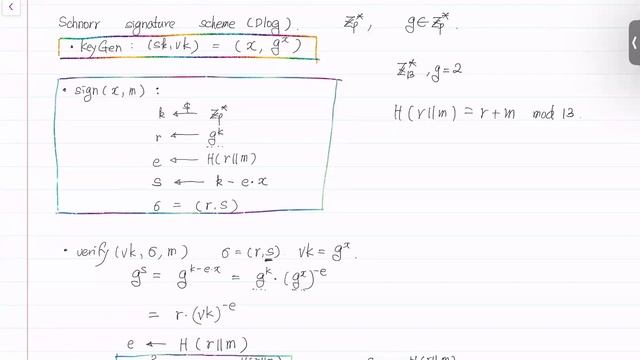 Schnorr signature scheme (Dlog).
ℤₚ*, g ∈ ℤₚ*.
• KeyGen : (sk, vk) = (x, gˣ)
ℤ₁₃*, g=2
• sign (x, m) :
H(r||m) = r+m mod 13.
k ←$ ℤₚ*
r ← gᵏ
e ← H(r||m)
s ← k - e·x
σ = (r, s)
• verify (vk, σ, m) σ = (r, s) vk = gˣ.
gˢ = gᵏ⁻ᵉ·ˣ = gᵏ · (gˣ)⁻ᵉ
= r · (vk)⁻ᵉ
e ← H(r||m)